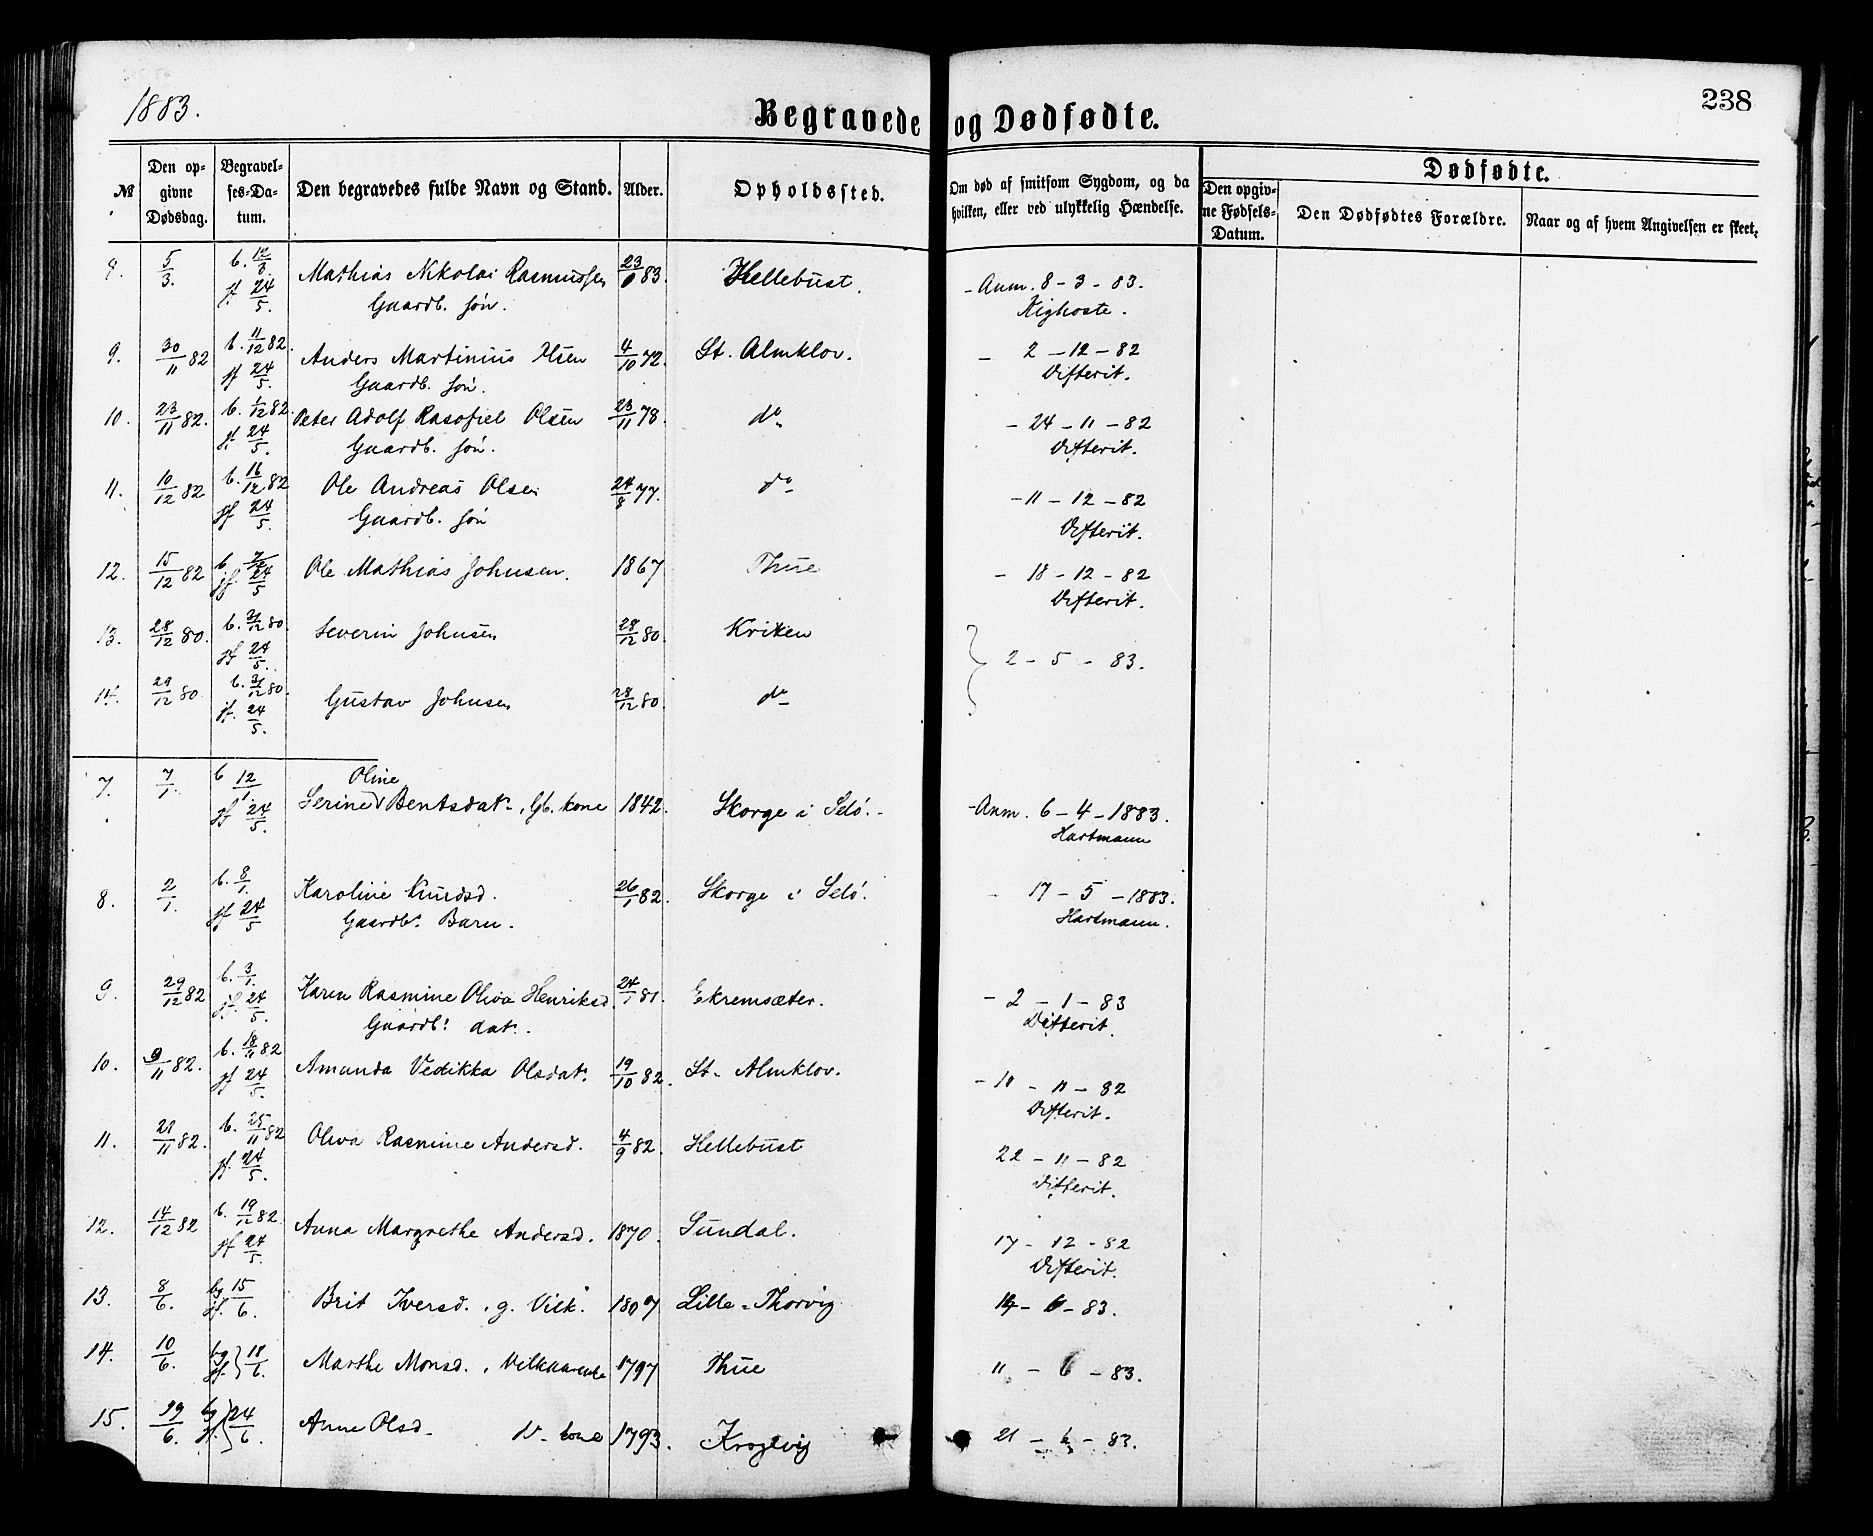 1883.
Begravede og Dødfødte.
238
№
Den opgivne Dødsdag.
Begravelses-Datum.
Den begravedes fulde Navn og Stand.
Alder.
Opholdssted.
Om død af smitsom Sygdom, og da hvilken, eller ved ulykkelig Hændelse.
Dødfødte.
Den opgivne Fødsels-Datum.
Den Dødfødtes Forældre.
Naar og af hvem Angivelsen er skeet.
8. 5/3. b. 12/3. Mathias Nikolai Rasmussen 83. Hellebust. - Anm. 8-3-83.
jf 24/5. Gaardb. søn. Kighoste.
9. 30/11 82 b. 11/12 82. Anders Martinius Olsen 4/10 72. St. Almklov. - 2-12-82
jf 24/5. Gaardb. søn. Difterit.
10. 23/11 82. b. 1/12 82. Peter Adolf Rasofiel Olsen 23/11 78. do - 24-11-82
jf. 24/5. Gaardb. søn. Difterit.
11. 10/12 82 b. 16/12 82 Ole Andreas Olsen 24/8 77. do - 11-12-82
jf 24/5. Gaardb. søn Difterit.
12. 15/12 82 b. Ole Mathias Johnsen. 1867 Thue - 18-12-82
jf 24/5 Difterit.
13. 28/12 80. b. 31/12 80. Severin Johnsen 28/12 80. Kriken
jf 24/5. } 2-5-83.
14. 29/12 80 b. 31/12 80. Gustav Johnsen 28/12 80. do
jf. 24/5.
Oline
7. 7/1. b 12/1. Serine Bentsdat., Gb. kone 1842. Skorge i Selø. - Anm. 6-4-1883.
jf 24/5. Hartmann
8. 2/1. b. 8/1. Karoline Knudsd. 26/1 82. Skorge i Selø. - 17-5-1883.
jf 24/5 Gaardb. Barn. Hartmann.
9. 29/12 82 b. 3/1. Karen Rasmine Oliva Henriksd. 24/1 81. Ekremsæter. - 2-1-83
jf. 24/5. Gaardb. dat. Difterit.
10. 9/11 82. b. 18/11 82 Amanda Vedikka Olsdat. 19/10 82. St. Almklov. - 10-11-82
jf 24/5. Difterit.
11. 21/11 82. b. 25/11 82 Oliva Rasmine Andersd. 4/9 82. Hellebust 22-11-82
jf. 24/5. Difterit.
12. 14/12 82 b. 19/12 82 Anna Margrethe Andersd. 1870. Sundal. 17-12-82
jf 24/5. Difterit.
13. 8/6. bg jf. 15/6. Brit Iversd., g. Vilk. 1807 Lille-Thorvig 14-6-83.
14. 10/6. bg jf. } 18/6. Marthe Monsd., Vilkaarenke 1797 Thue 11-6-83.
15. 19/6. bg jf. } 24/6. Anne Olsd. V-kone 1793. 21-6-83.